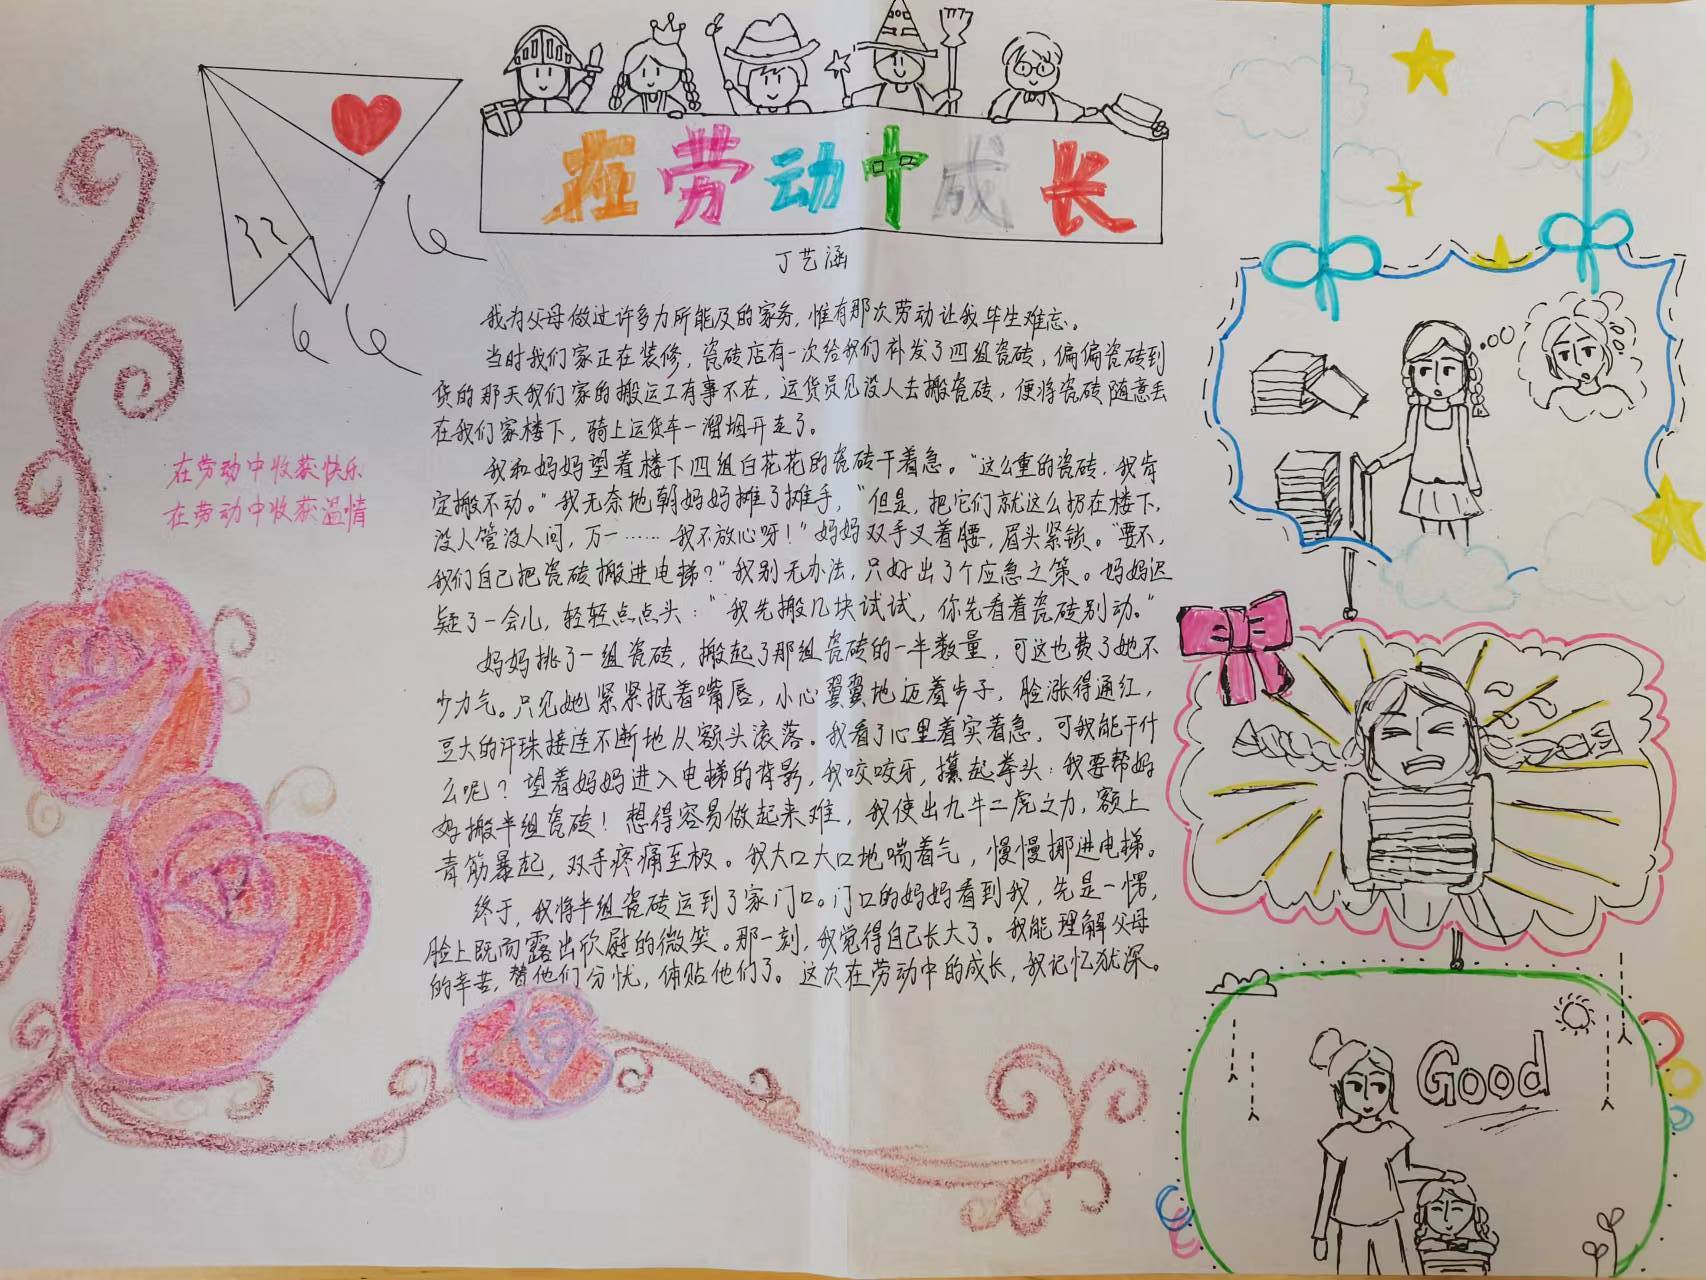 在劳动中成长
丁艺涵
我为父母做过许多力所能及的家务，惟有那次劳动让我毕生难忘。
当时我们家正在装修，瓷砖店有一次给我们补发了四组瓷砖，偏偏瓷砖到
货的那天我们家的搬运工有事不在，运货员见没人去搬瓷砖，便将瓷砖随意丢
在我们家楼下，骑上运货车一溜烟开走了。
我和妈妈望着楼下四组白花花的瓷砖干着急。“这么重的瓷砖，我肯
定搬不动。”我无奈地朝妈妈摊了摊手，“但是，把它们就这么扔在楼下，
没人管没人问，万一……我不放心呀！”妈妈双手叉着腰，眉头紧锁。“要不，
我们自己把瓷砖搬进电梯？”我别无办法，只好出了个应急之策。妈妈迟
疑了一会儿，轻轻点点头：“我先搬几块试试，你先看着瓷砖别动。”
妈妈挑了一组瓷砖，搬起了那组瓷砖的一半数量，可这也费了她不
少力气。只见她紧紧抿着嘴唇，小心翼翼地迈着步子，脸涨得通红，
豆大的汗珠接连不断地从额头滚落。我看了心里着实着急，可我能干什
么呢？望着妈妈进入电梯的背影，我咬咬牙，攥起拳头：我要帮妈
妈搬半组瓷砖！想得容易做起来难，我使出九牛二虎之力，额上
青筋暴起，双手疼痛至极。我大口大口地喘着气，慢慢挪进电梯。
终于，我将半组瓷砖运到了家门口。门口的妈妈看到我，先是一愣，
脸上既而露出欣慰的微笑。那一刻，我觉得自己长大了。我能理解父母
的辛苦，替他们分忧，体贴他们了。这次在劳动中的成长，我记忆犹深。
在劳动中收获快乐
在劳动中收获温情
Good